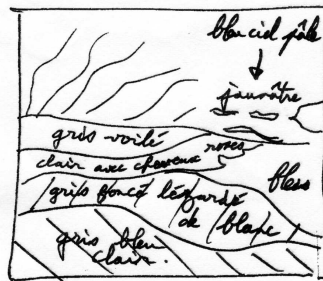 bleu ciel pâle
jaunâtre
gris voilé
clair avec cheveux roses
gris foncé lézardé
de blanc
gris bleu
clair.